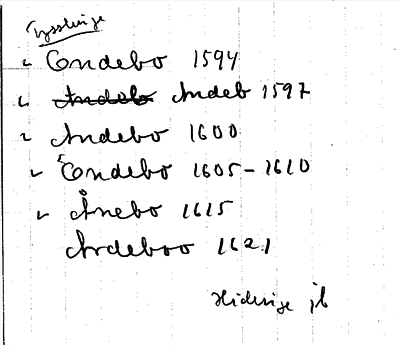 Tysslinge
Condebo 1594
Andeb 1597
Andebo 1600
Condebo 1605-1610
Ånebo 1615
Ardeboo 1621
Hidinge jb